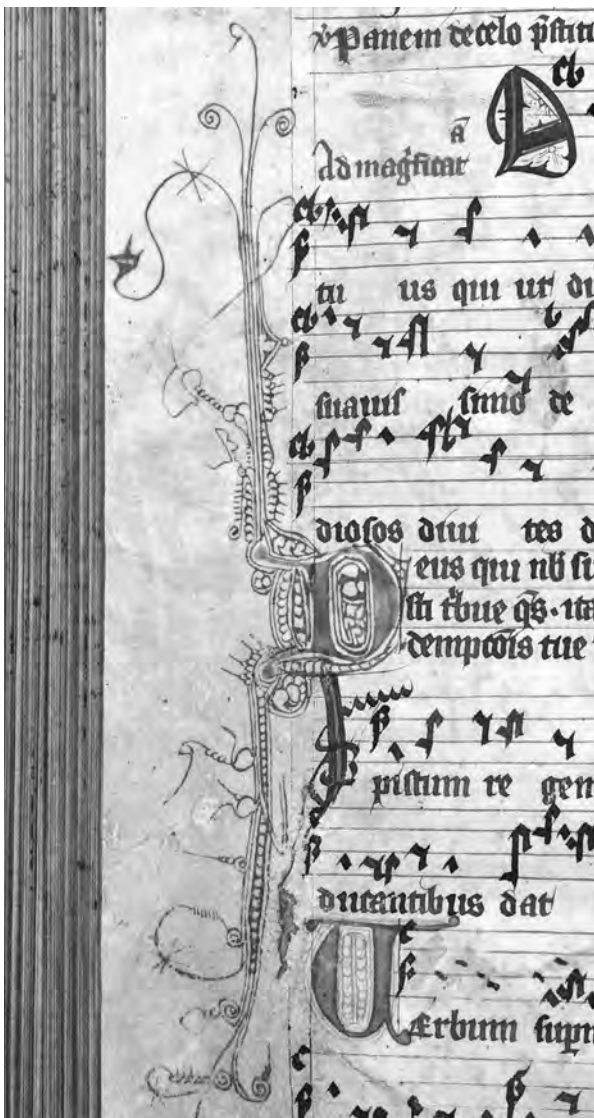 Panem de celo p̄stit
Ad mag̃ficat ā
tu us qui ut du
suauis simo de
diosos diui tes d
D eus qui nb̄ su
sti t̾bue qs̄. ita
demptōis tue
pistum re gem
ducantibus dat
U Ærbum sup̄n